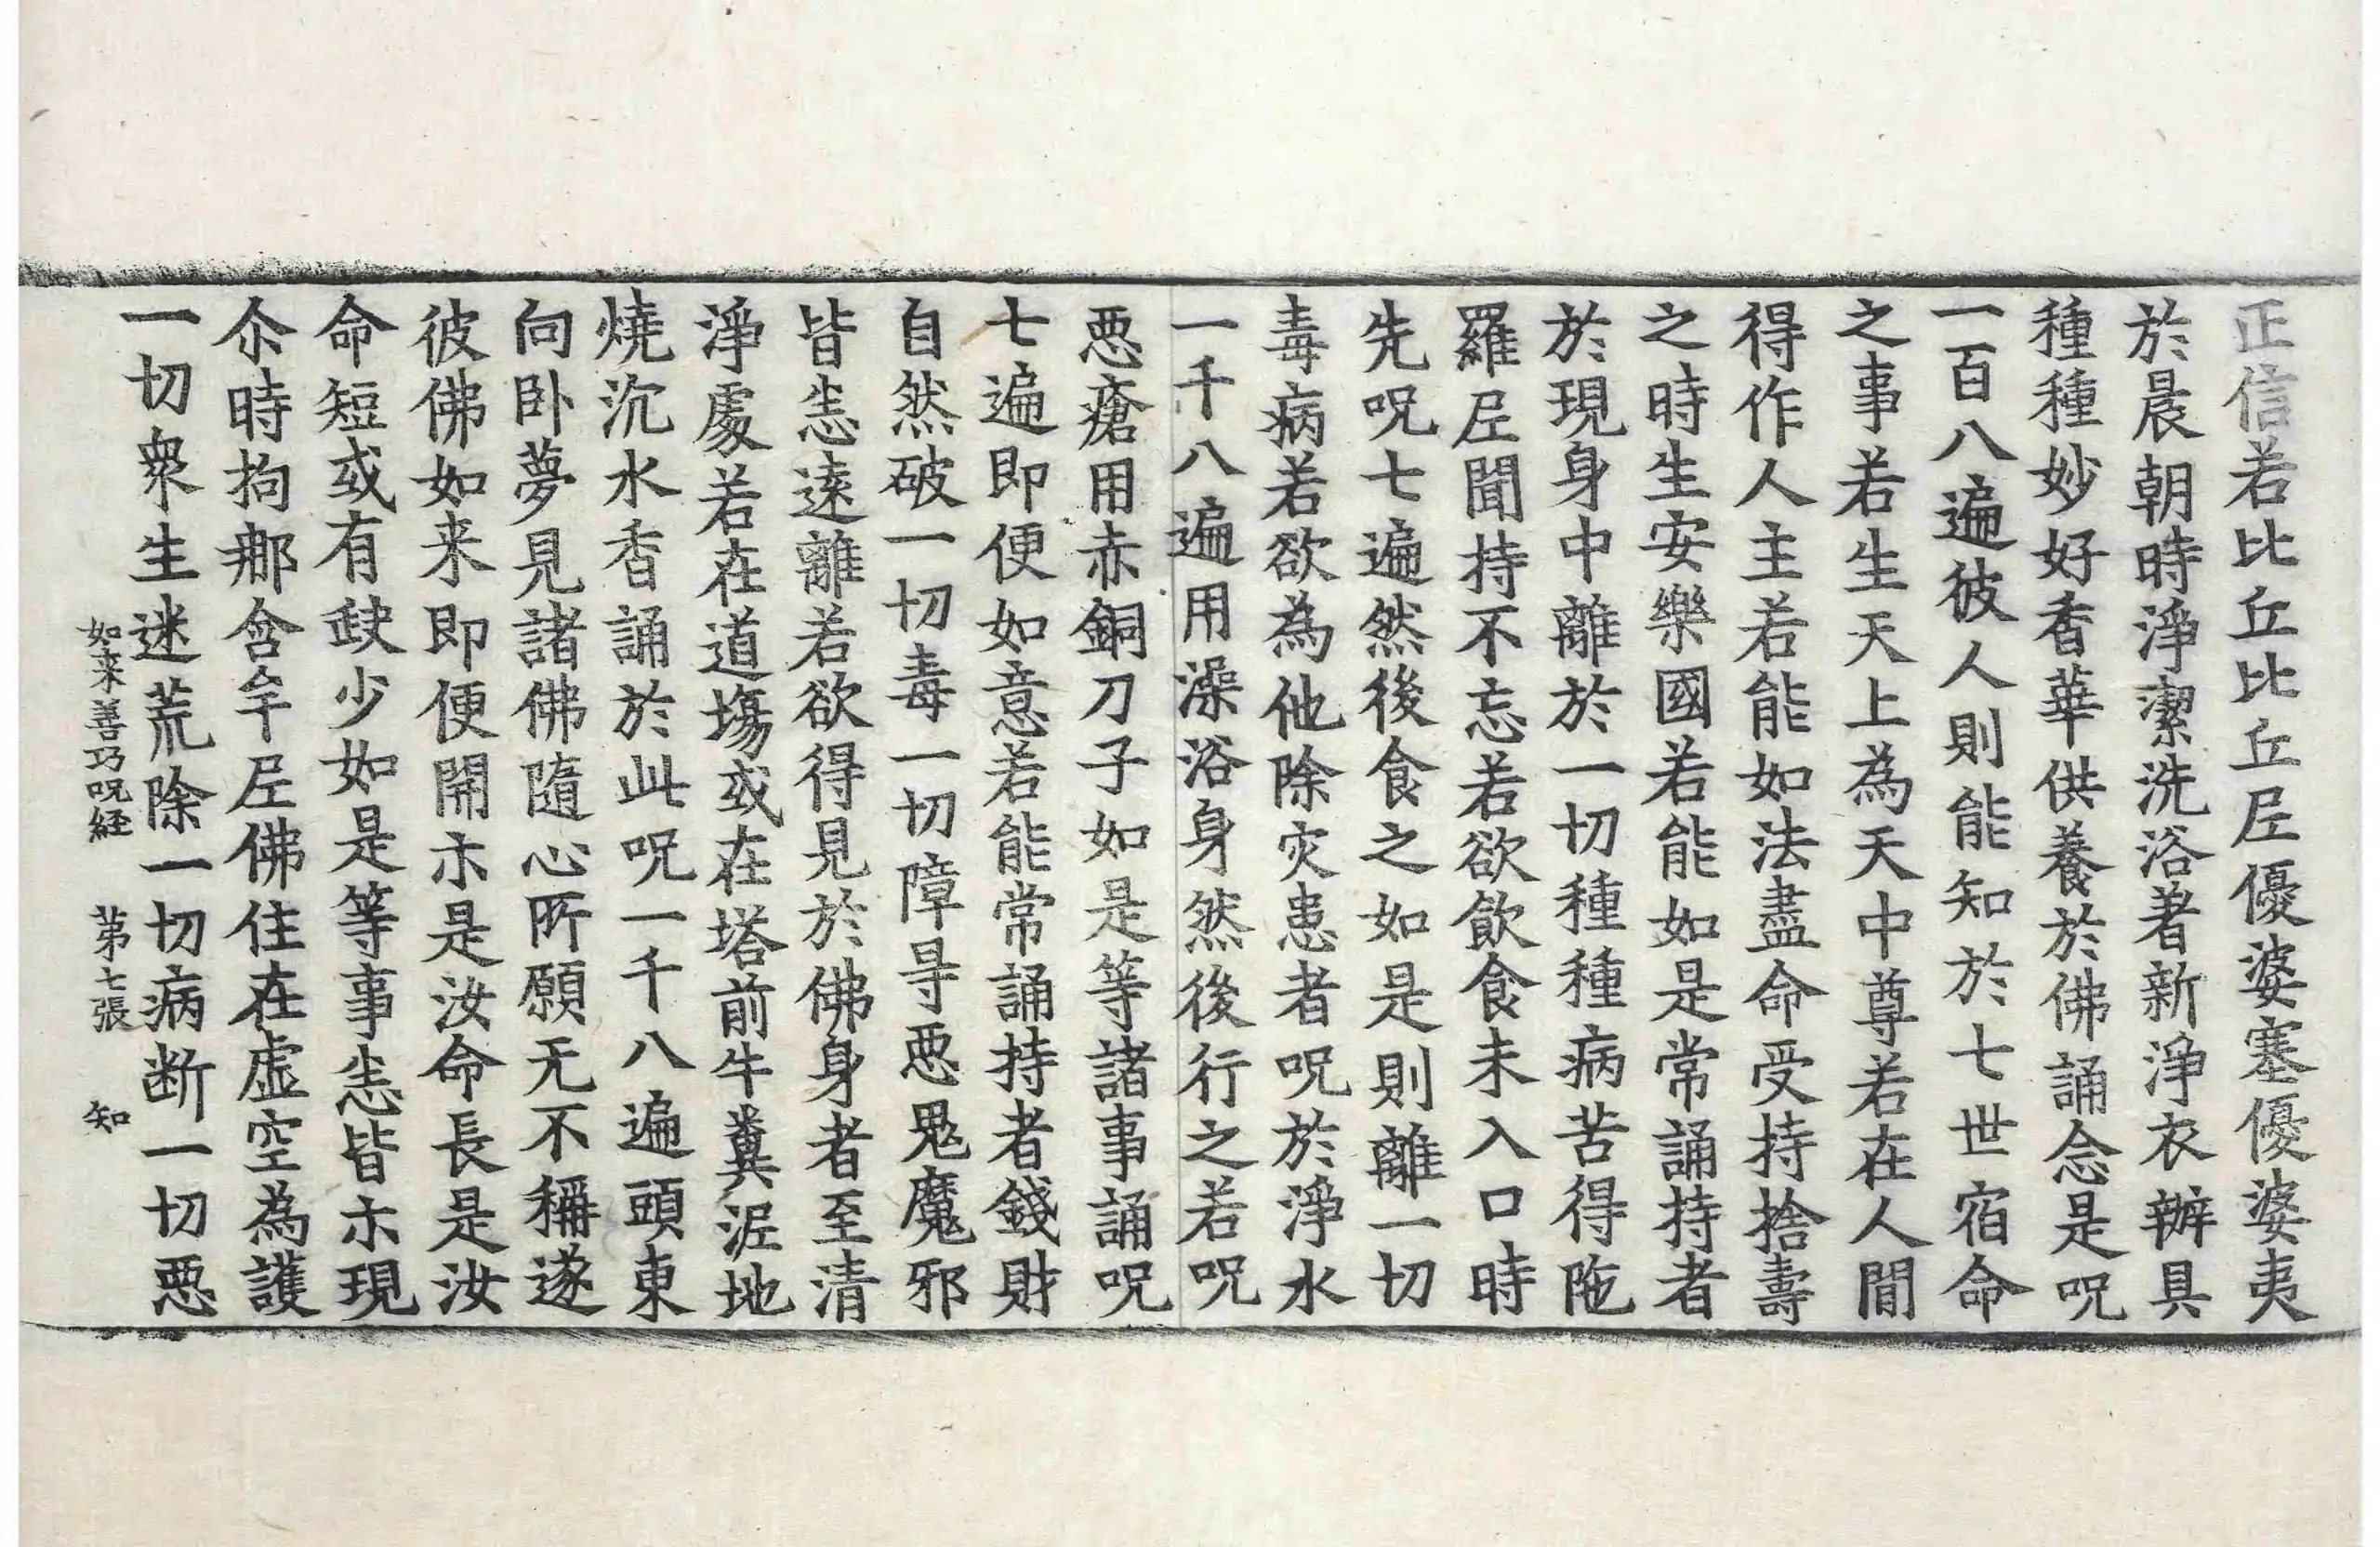 正信若比丘比丘𡰱優婆塞優婆夷
於晨朝時淨潔洗浴著新淨衣辦具
種種妙好香華供養於佛誦念是呪
一百八遍彼人則能知於七世宿命
之事若生天上為天中尊若在人間
得作人主若能如法盡命受持捨壽
之時生安樂國若能如是常誦持者
於現身中離於一切種種病苦得陁
羅𡰱聞持不忘若欲飲食未入口時
先呪七遍然後食之如是則離一切
毒病若欲為他除灾患者呪於淨水
一千八遍用澡浴身然後行之若呪
惡瘡用赤銅刀子如是等諸事誦呪
七遍即便如意若能常誦持者錢財
自然破一切毒一切障㝵惡鬼魔邪
皆悉遠離若欲得見於佛身者至清
淨處若在道塲或在塔前牛糞泥地
燒沉水香誦於此呪一千八遍頭東
向卧夢見諸佛隨心所願无不稱遂
彼佛如来即便開示是汝命長是汝
命短或有𡙇少如是等事悉皆示現
尒時拘那含牟𡰱佛住在虛空為護
一切衆生迷荒除一切病断一切惡
如来善巧呪経　第七張　知